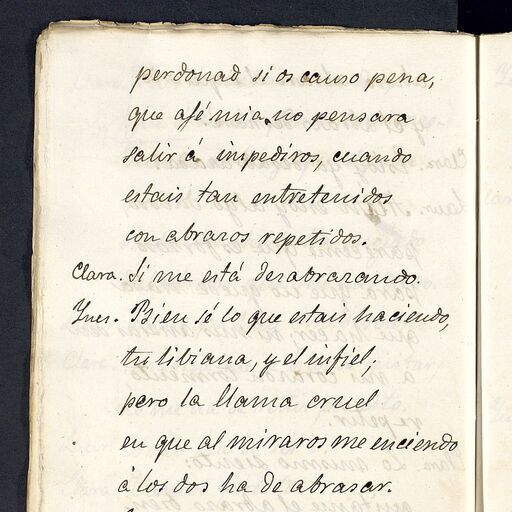 perdonad si os causo pena,
que afé mia no pensara
salir á impediros, cuando
estais tan entretenidos
con abrazos repetidos.
Clara. Si me está desabrazando.
Ynes. Bien sé lo que estais haciendo,
tu libiana, y el infiel;
pero la llama cruel
en que al miraros me enciendo
á los dos ha de abrasar.